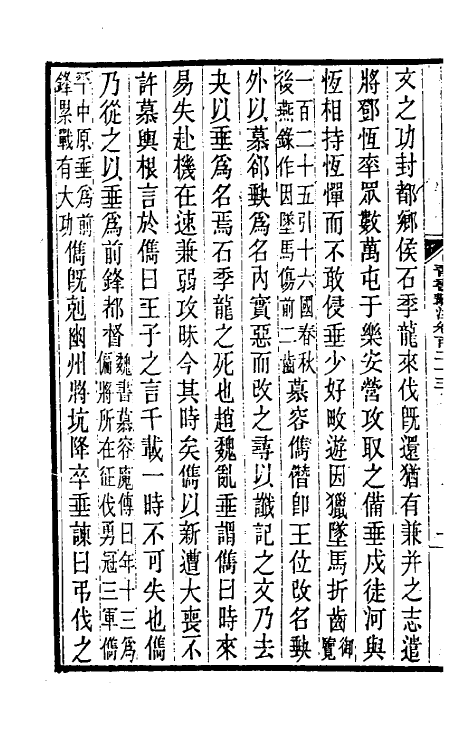 文之功封都鄉侯石季龍來伐旣還猶有兼并之志遣
將鄧恆率眾數萬屯于樂安營攻取之備垂戍徒河與
恆相持恆憚而不敢侵垂少好畋遊因獵墜馬折齒御覽
一百二十五引十六國春秋後燕錄作因墜馬傷前二齒慕容儁僭卽王位改名𡙇
外以慕郤𡙇爲名內實惡而改之尋以讖記之文乃去
夬以垂爲名焉石季龍之死也趙魏亂垂謂儁曰時來
易失赴機在速兼弱攻昧今其時矣儁以新遭大喪不
許慕輿根言於儁曰王子之言千載一時不可失也儁
乃從之以垂爲前鋒都督魏書慕容廆傳曰年十三爲偏將所在征伐勇冠三軍儁
平中原垂爲前鋒累戰有大功儁旣剋幽州將坑降卒垂諫曰弔伐之